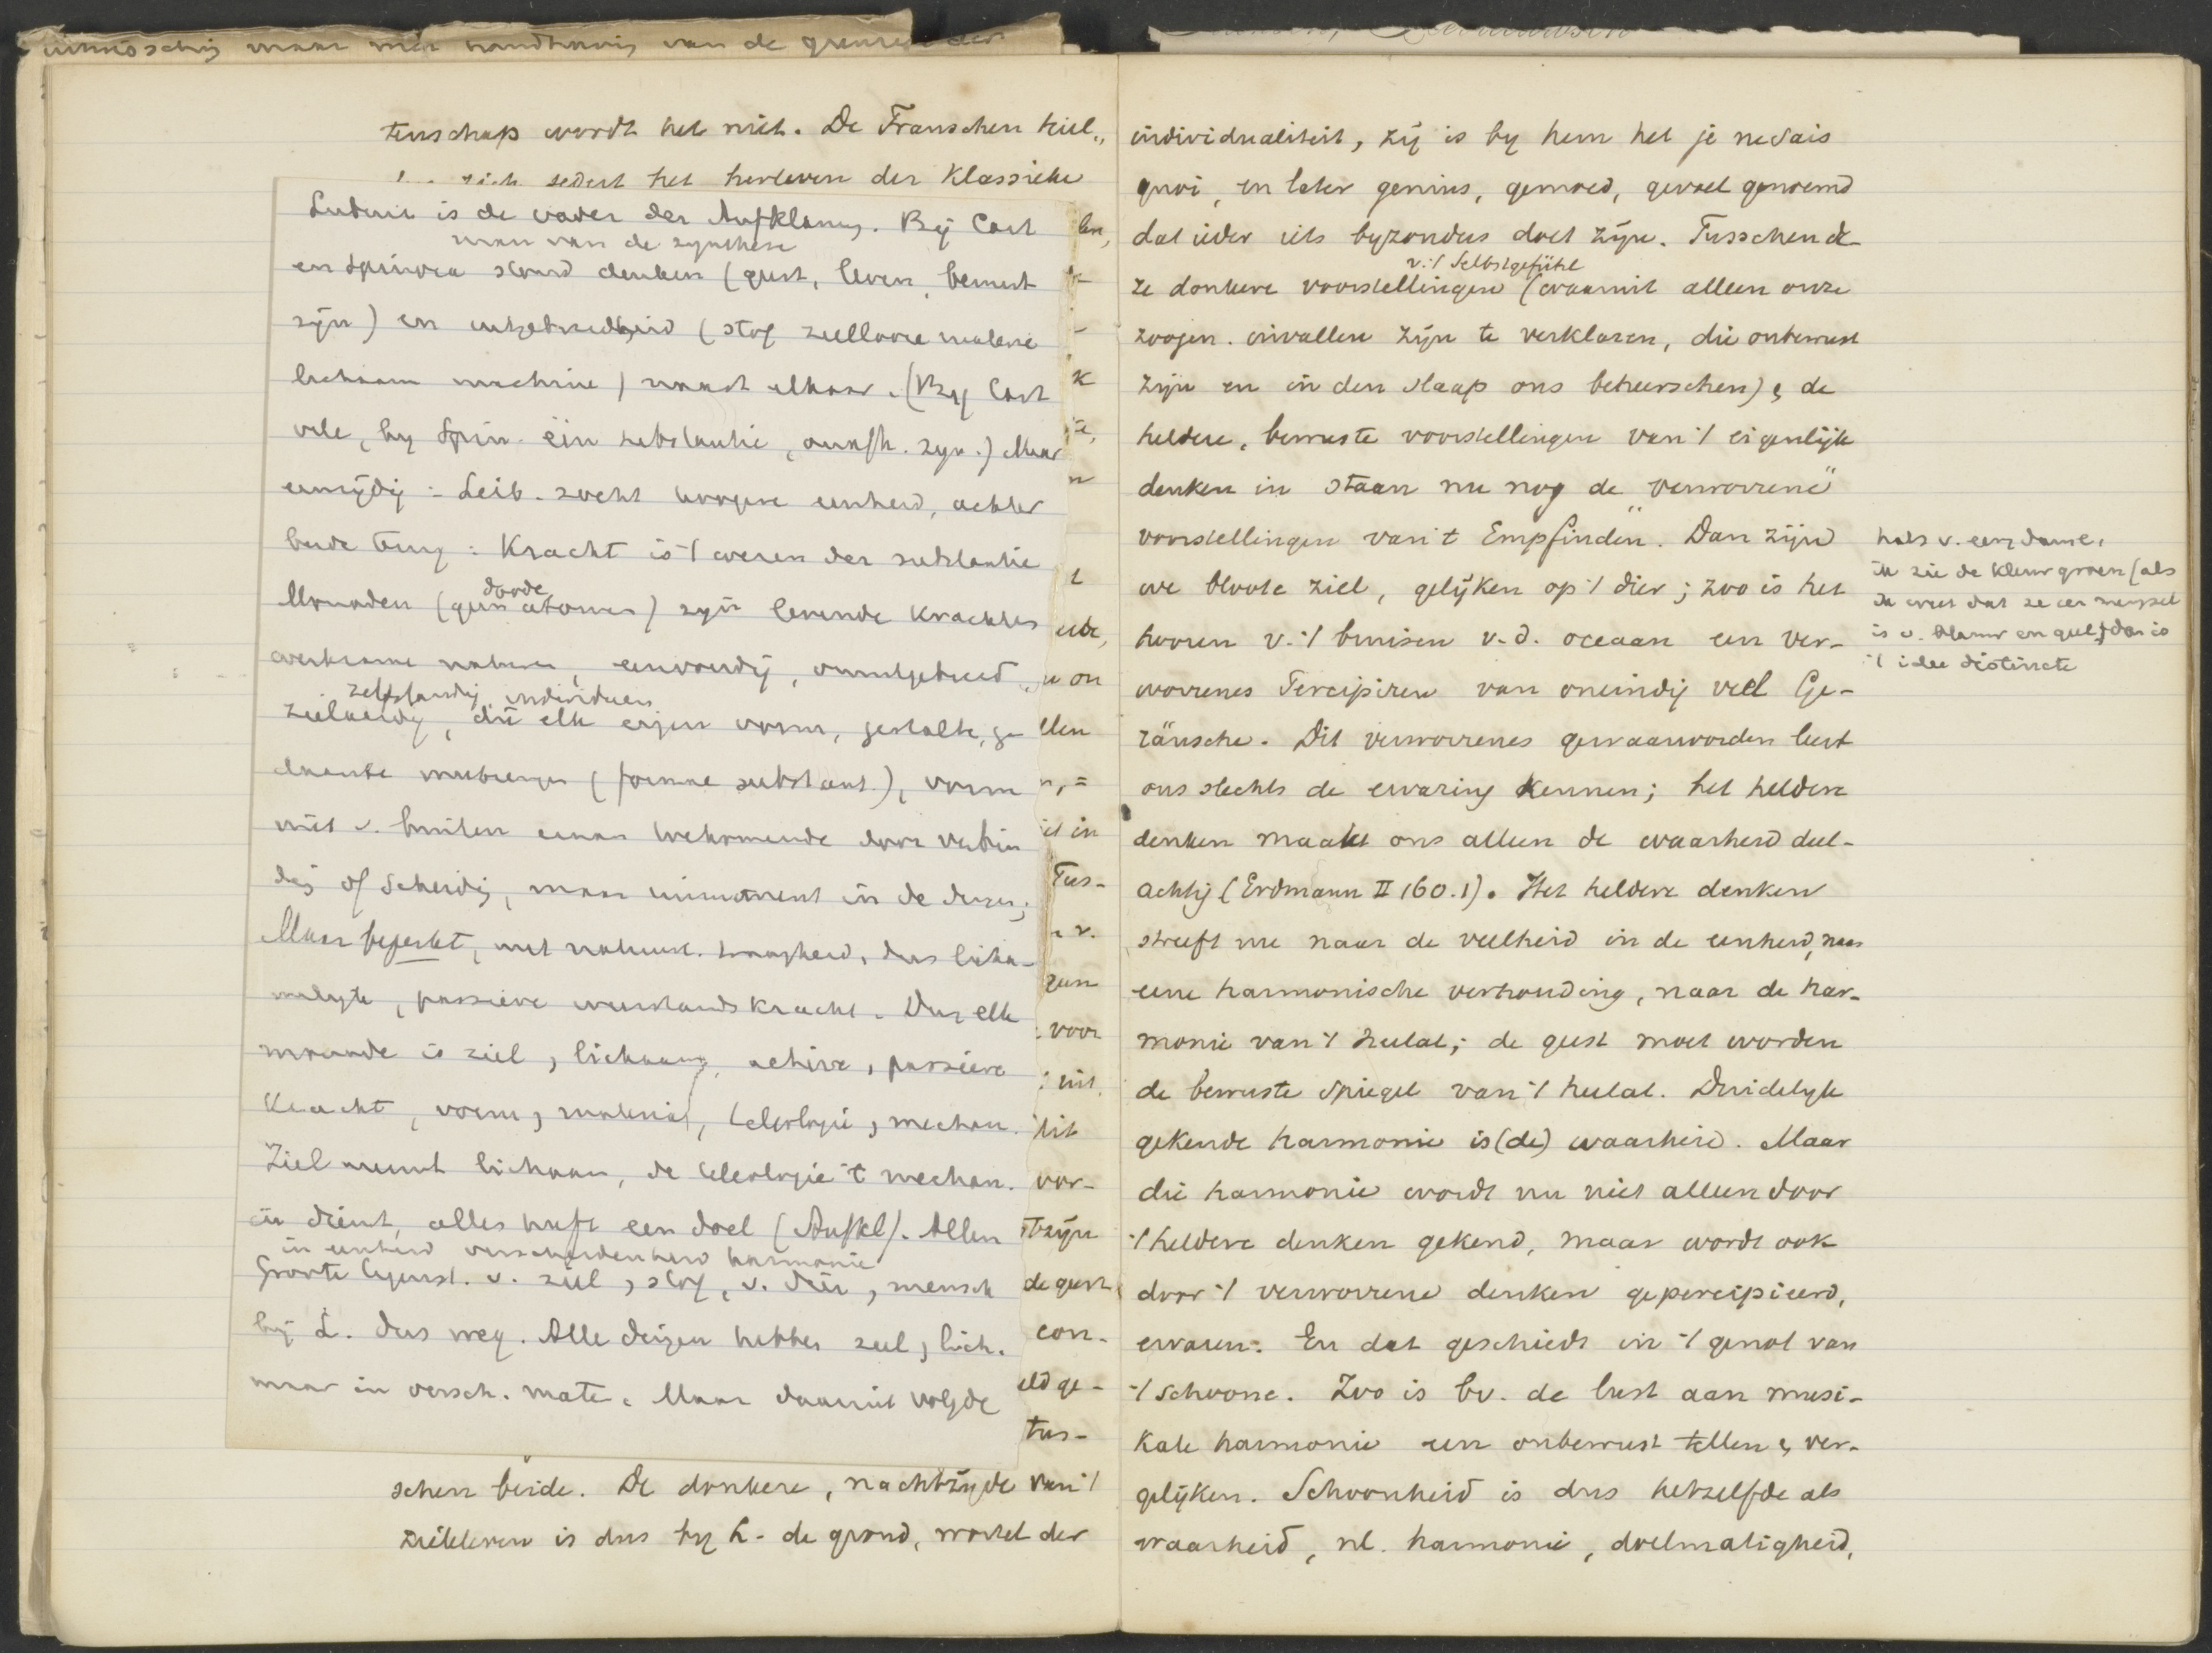 maar met handhaving van de grenzen der
tenschap wordt het niet. De Franschen hiel„
zich sedert het herleven der Klassieke
Leibniz is de vader der Aufklärung. Bij Cart
man van de synthese
en Spinoza stond denken (geest, leven, bewust
zijn) en uitgebreidheid (stof zielloose materie
lichaam machine) naast elkaar. (Bij Cart
vele, by Spin. één substantie, onafh. zyn.) Maar
eenzijdig: Leib. zocht hoogere eenheid, achter
beide terug: Kracht is 't wezen der substantie
doode
Monaden (geen atomen) zyn levende krachten
werkzame naturen, eenvoudig, onuitgebreid,
zelfstandig, individueen
zielaardig, die elk eigen vorm, gestalte, ge
daante meebrengen (forme substant.), vorm
niet v. buiten eraan toekomende door verbin
dig of scheidig, maar immanent in de dingen;
Maar beperkt, met natuurl. traagheid, dus licha-
melyke, passieve weerstandskracht. Dus elke
monade is ziel, lichaam, actieve, passieve
kracht, vorm, materie, teleologie, mechan.
Ziel neemt lichaam, de teleologie 't mechan.
in dienst, alles heeft een doel (Aufkl). Alleen
in eenheid verscheidenheid harmonie
Groote tegenst. v. ziel, stof, v. dier, mensch
bij L. dus weg. Alle dingen hebben ziel, lich.
maar in versch. mate. Maar daaruit volgde
len,
K
n
t
u on
llen
n, =
it in
Tus-
v.
gen
voor
uit
dit
vor-
zijn
de geest
con-
eld ge-
tus-
schen beide. De donkere, nachtzijde van 't
zieleleven is dus by L. de grond, wortel der
individualiteit, zij is by hem het je ne sais
quoi, en later genius, gemoed, gevoel genoemd
dat ieder iets byzonders doet zijn. Tusschen de-
v. 't Selbstgefühl
ze donkere voorstellingen (waaruit alleen onze
zoogen. invallen zijn te verklaren, die onbewust
zijn en in den slaap ons beheerschen), de
heldere, bewuste voorstellingen van 't eigenlijk
denken in staan nu nog de „verworrene”
voorstellingen van 't „Empfinden”. Dan zijn
we bloote ziel, gelijken op 't dier; zoo is het
hooren v. 't bruisen v. d. oceaan een ver-
worrenes Percipiren van oneindig veel Ge-
räusche. Dit verworrenes gewaarworden leert
ons slechts de ervaring kennen; het heldere
denken maakt ons alleen de waarheid deel-
achtig (Erdmann II 160.1). Het heldere denken
streeft nu naar de veelheid in de eenheid, naar
eene harmonische verhouding, naar de har-
monie van 't heelal; de geest moet worden
de bewuste spiegel van 't heelal. Duidelyk
gekende harmonie is (de) waarheid. Maar
die harmonie wordt nu niet alleen door
't heldere denken gekend, maar wordt ook
door 't verworrene denken gepercipieerd,
ervaren. En dat geschiedt in 't genot van
't schoone. Zoo is bv. de lust aan musi-
kale harmonie een onbewust tellen, ver-
gelijken. Schoonheid is dus hetzelfde als
waarheid, nl. harmonie, doelmatigheid,
ik zie de kleur groen (als
ik weet dat ze een mengsel
is v. blauw en geel, dan is
't idee distincte